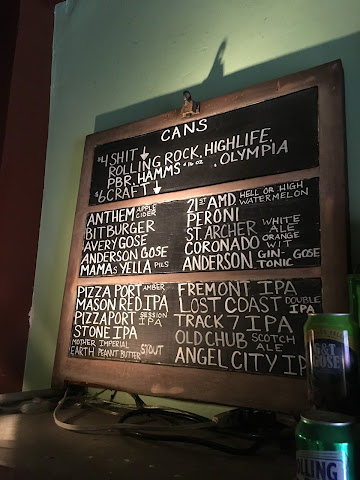 CANS
$4 SHIT ↓
ROLLING ROCK, HIGHLIFE,
PBR, HAMMS 16 OZ, OLYMPIA
$6 CRAFT ↓
ANTHEM APPLE CIDER
BITBURGER
AVERY GOSE
ANDERSON GOSE
MAMAS YELLA PILS
21ST AMD HELL OR HIGH WATERMELON
PERONI
ST. ARCHER WHITE ALE
CORONADO ORANGE WIT
ANDERSON GIN-TONIC GOSE
PIZZA PORT AMBER
MASON RED IPA
PIZZA PORT SESSION IPA
STONE IPA
MOTHER EARTH IMPERIAL PEANUT BUTTER STOUT
FREMONT IPA
LOST COAST DOUBLE IPA
TRACK 7 IPA
OLD CHUB SCOTCH ALE
ANGEL CITY IP
G&T
GOSE
LLING